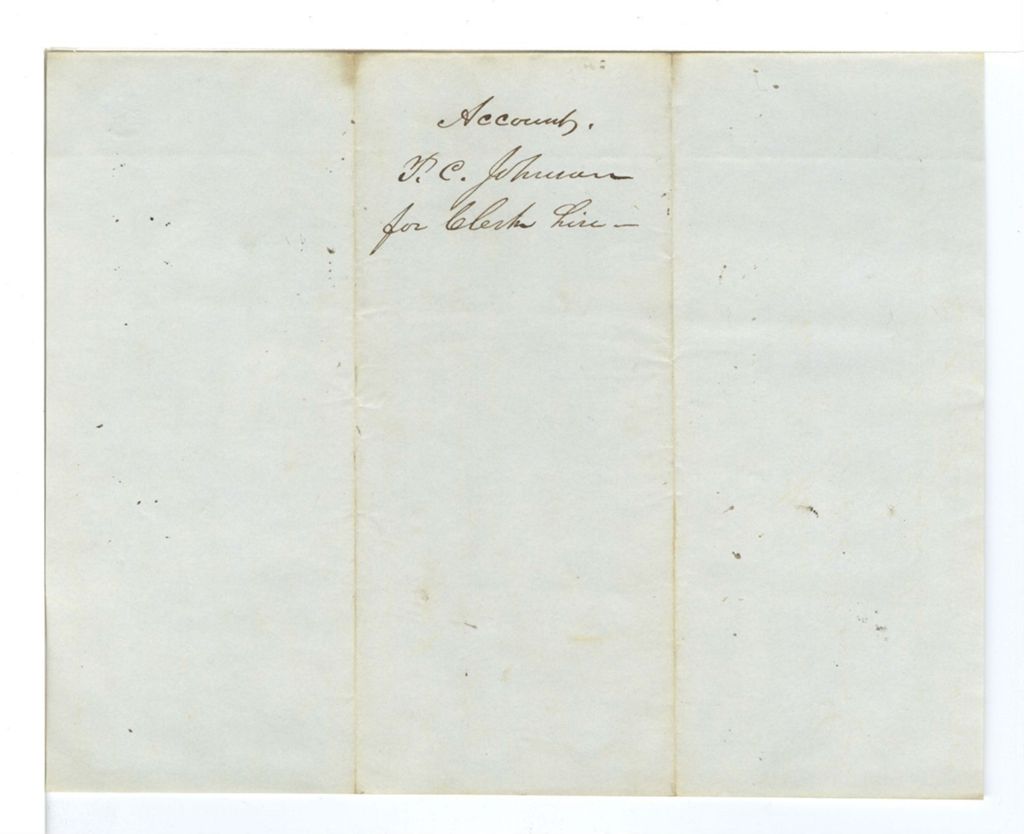 Account.
P. C. Johnson
for Clerk hire —